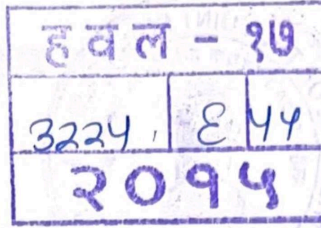 हवल - १७
३२२५ ६ ५५
२०१५